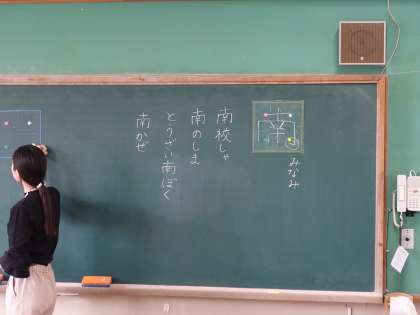 南
みなみ
南校しゃ
南のしま
とうざい南ぼく
南かぜ